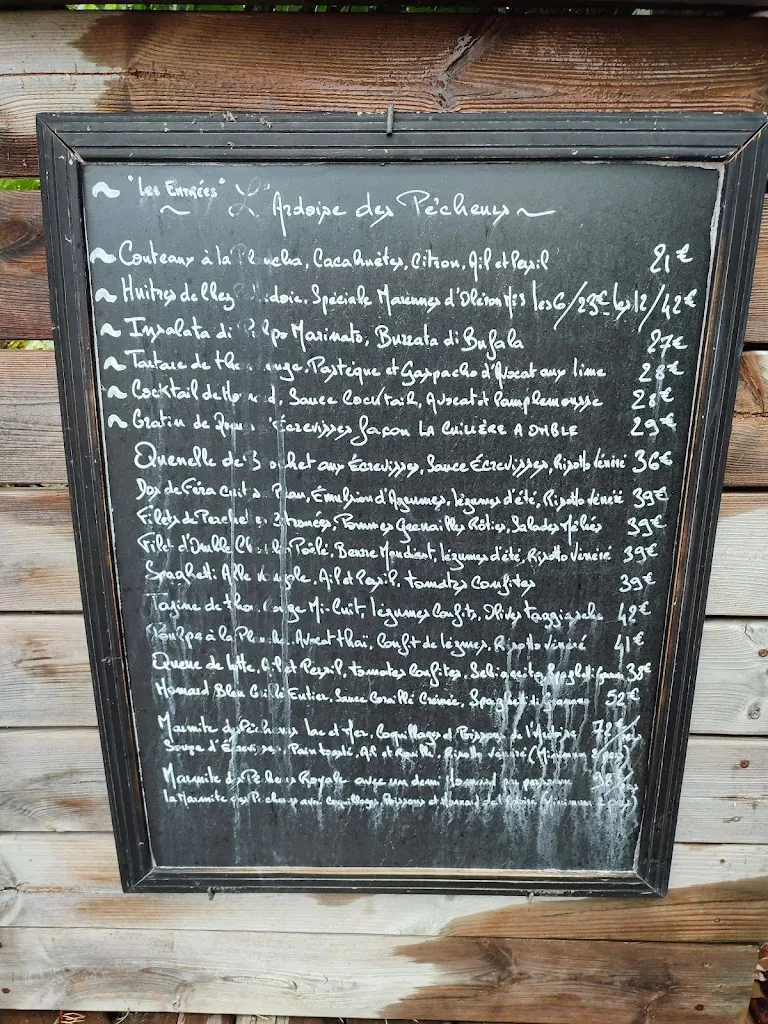 ~ "Les Entrées" L'Ardoise des Pêcheurs ~
~ Couteaux à la Plancha, Cacahuètes, Citron, Ail et Persil 21€
~ Huitres de Chez, Spéciale Marennes d'Oléron N°3 les 6/23€ les 12/42€
~ Insalata di Polpo Marinato, Burrata di Bufala 27€
~ Tartare de thon rouge, Pastèque et Gaspacho d'Avocat aux lime 28€
~ Cocktail de Homard, Sauce Cocktail, Avocat et Pamplemousse 28€
~ Gratin de Queues d'Écrevisses façon LA CUILLÈRE A OMBLE 29€
Quenelle de Brochet aux Écrevisses, Sauce Écrevisses, Risotto Vénéré 36€
Dos de Féra cuit s. Peau, Émulsion d'Agrumes, légumes d'été, Risotto Vénéré 39€
Filets de Perche Citronnés, Pommes Grenailles Rôties, Salades Mêlés 39€
Filet d'Omble Chevalier Poêlé, Beurre Mendiant, légumes d'été, Risotto Vénéré 39€
Spaghetti Alle Vongole, Ail et Persil, tomates Confites 39€
Tajine de thon rouge Mi-Cuit, légumes Confits, Olives taggiasche 42€
Poulpe à la Plancha, Avocat thaï, Confit de légumes, Risotto Vénéré 41€
Queue de lotte, Ail et Persil, tomates Confites, Spaghetti 38€
Homard Bleu Grillé Entier, Sauce Coraillé Crémée, Spaghetti di 52€
Marmite des Pêcheurs lac et Mer, Coquillages et Poissons de l'Ardoise 72€
Soupe d'Écrevisses, Pain toasté, Ail et Rouille, Risotto Vénéré (Minimum 2 pers)
Marmite des Pêcheurs Royale avec un demi Homard par personne 98€
la Marmite des Pêcheurs avec Coquillages, Poissons et Homard de l'Ardoise (Minimum 2 pers)